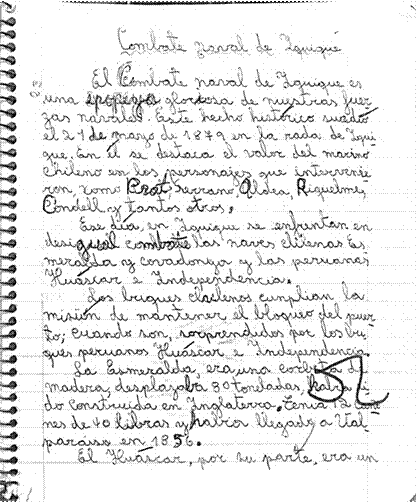 Combate naval de Iquique
El Combate naval de Iquique es
una epopeya gloriosa de nuestras fuer-
zas navales. Este hecho histórico sucedió
el 21 de mayo de 1879 en la rada de Iqui-
que. En él se destaca el valor del marino
chileno en los personajes que intervinie
ron como Prat, Serrano, Aldea, Riquelme,
Condell y tantos otros.
Ese día, en Iquique se enfrentan en
desigual combate las naves chilenas Es
meralda y covadonga y las peruanas
Huáscar e Independencia.
Los buques chilenos cumplian la
misión de mantener el bloqueo del puer
to; cuando son, sorprendidos por los bu
ques peruanos Huáscar e Independencia.
La Esmeralda, era una corbeta de
madera, desplazaba 80 toneladas, habia si
do construida en Inglaterra. Tenía 12 caño
nes de 40 libras y habia llegado a Val
paraíso en 1856.
El Huáscar, por su parte, era un